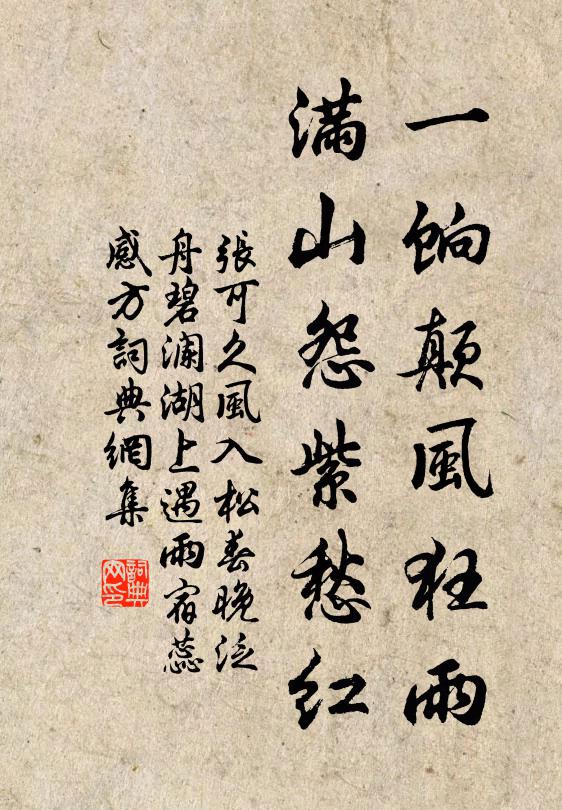 一餉顛風狂雨
滿山怨紫愁紅
張可久風入松春晚泛
舟碧瀾湖上遇雨宿蕊
感方詞典網集
詞典
网印